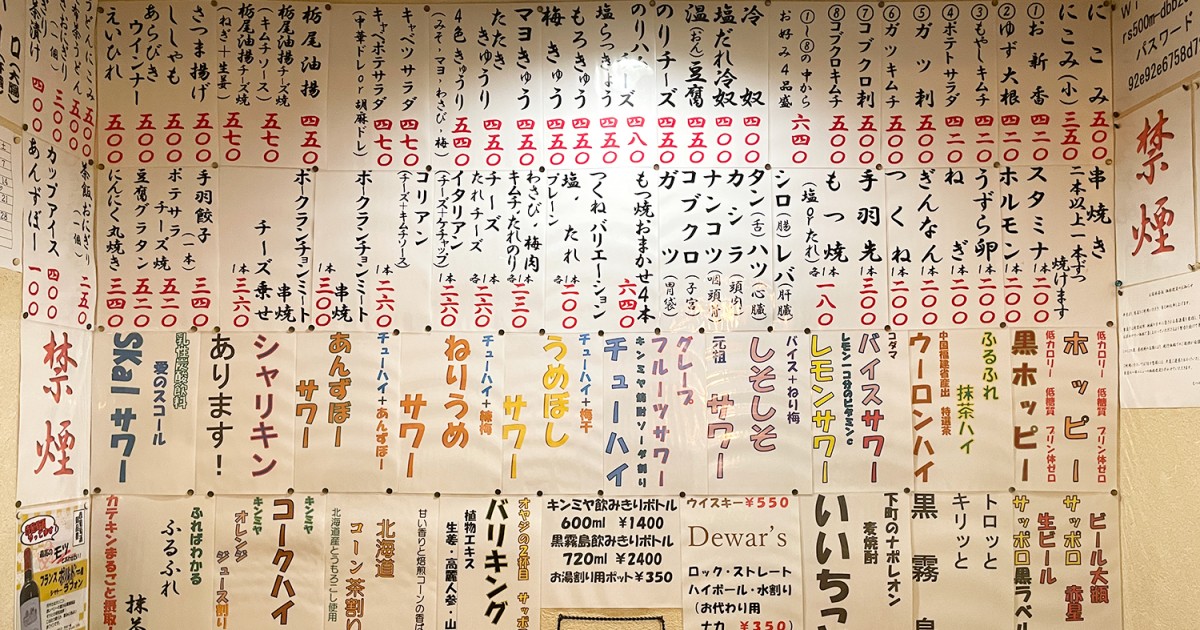 にこみ 五〇〇
にこみ(小) 三五〇
①お新香 四二〇
②ゆず大根 四二〇
③もやしキムチ 四二〇
④ポテトサラダ 四二〇
⑤ガツ刺 五〇〇
⑥ガツキムチ 五〇〇
⑦コブクロ刺 五〇〇
⑧コブクロキムチ 五〇〇
①〜⑧の中から
お好み4品盛 六四〇
冷奴 四〇〇
塩だれ冷奴 四〇〇
温(おん)豆腐 四五〇
のりチーズ 四五〇
のりハーブチーズ 四八〇
塩らっきょう 四五〇
もろきゅう 四五〇
梅きゅう 四五〇
マヨきゅう 四五〇
たたききゅうり 四五〇
4色きゅうり 五四〇
(みそ・マヨ・わさび・梅)
キャベツサラダ 四七〇
キャベポテサラダ 四七〇
(中華ドレor胡麻ドレ)
栃尾油揚 四五〇
栃尾油揚チーズ焼
(キムチソース) 五七〇
栃尾油揚チーズ焼
(ねぎ+生姜) 五七〇
さつま揚げ 五〇〇
ししゃも 五〇〇
あらびきウインナー 五〇〇
えいひれ 五〇〇
うどんにこみ 五五〇
お茶漬け 四〇〇
串焼き
二本以上一本ずつ
焼けます
スタミナ 1本 二〇〇
ホルモン 1本 二〇〇
うずら卵 1本 二〇〇
ねぎ 1本 二〇〇
ぎんなん 1本 二〇〇
つくね 1本 二〇〇
手羽先 1本 三〇〇
もつ焼 1本 各 一八〇
(塩orたれ)
シロ(腸)レバ(肝臓)
タン(舌)ハツ(心臓)
カシラ(頭肉)
ナンコツ(咽頭管)
コブクロ(子宮)
ガツ(胃袋)
もつ焼おまかせ4本 六四〇
つくねバリエーション
塩、たれ 1本 各 二〇〇
プレーン
わさび・梅肉
キムチたれのり 1本 各 二三〇
チーズ
たれチーズ 1本 各 二六〇
イタリアン 1本 二六〇
(チーズ+ケチャップ)
コリアン
(チーズ+キムチソース)
ボークランチョンミート 1本 二六〇
ボークランチョンミート
串焼 1本 三〇〇
チーズ乗せ 1本 三六〇
手羽餃子(一本) 三〇〇
ポテサラチーズ焼 五二〇
豆腐グラタン 五二〇
にんにく丸焼き 三四〇
茶飯おにぎり(一個) 二五〇
カップアイス 四〇〇
あんずぼー 一〇〇
禁煙
禁煙
低カロリー 低糖質 プリン体ゼロ
ホッピー
低カロリー 低糖質 プリン体ゼロ
黒ホッピー
ふるふれ
抹茶ハイ
中国福建省産出 特選茶
ウーロンハイ
コダマ
バイスサワー
レモン一コ分のビタミンC
レモンサワー
バイス+ねり梅
しそしそ
元祖
サワー
グレープ
フルーツサワー
キンミヤ焼酎ソーダ割り
チューハイ
チューハイ+梅干
うめぼし
サワー
チューハイ+練梅
ねりうめ
サワー
チューハイ+あんずぼー
あんずぼー
サワー
シャリキン
あります!
乳性炭酸飲料
愛のスコール
Skal サワー
ビール大瓶
サッポロ 赤星
生ビール
サッポロ黒ラベル
トロッと
キリッと
黒霧島
下町のナポレオン
麦焼酎
いいちこ
ウイスキー¥550
Dewar's
ロック・ストレート
ハイボール・水割り
(お代わり用
ナカ ¥350)
キンミヤ飲みきりボトル
600ml ¥1400
黒霧島飲みきりボトル
720ml ¥2400
お湯割り用ポット¥350
オヤジの2杯目 サッポロ
バリキング
植物エキス
生姜・高麗人参・山
甘い香りと焙煎コーンの香ば
北海道
コーン茶割り
北海道産とうもろこし使用
キンミヤ
コークハイ
キンミヤ
オレンジ
ジュース割り
ふればわかる
ふるふれ
抹茶
カテキンまるごと摂取
パスワード
92e92e6758d7